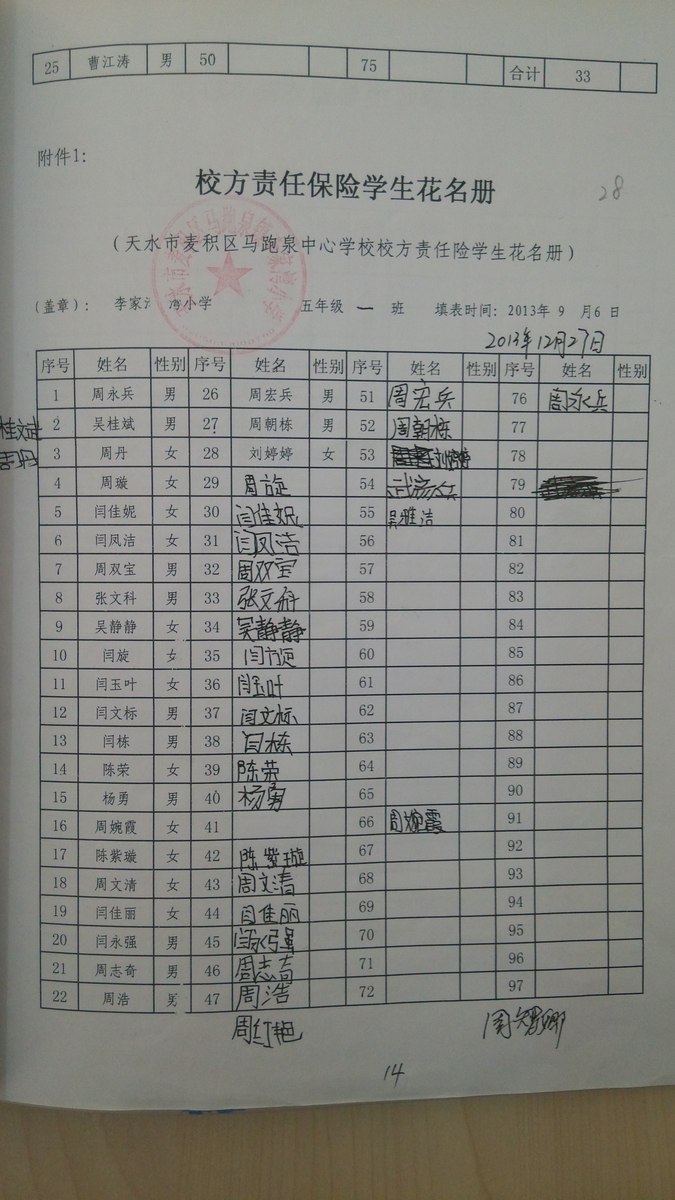 25 曹江涛 男 50 75 合计 33
附件1:
校方责任保险学生花名册
28
(天水市麦积区马跑泉中心学校校方责任险学生花名册)
(盖章): 李家 湾小学 五年级 一 班 填表时间: 2013年 9 月6 日
2013年12月27日
序号 姓名 性别 序号 姓名 性别 序号 姓名 性别 序号 姓名 性别
1 周永兵 男 26 周宏兵 男 51 周宏兵 76 周永兵
桂斌 2 吴桂斌 男 27 周朝栋 男 52 周朝栋 77
周丹 3 周丹 女 28 刘婷婷 女 53 刘婷婷 78
4 周璇 女 29 周旋 54 79
5 闫佳妮 女 30 闫佳妮 55 吴雅洁 80
6 闫凤洁 女 31 闫凤洁 56 81
7 周双宝 男 32 周双宝 57 82
8 张文科 男 33 张文科 58 83
9 吴静静 女 34 吴静静 59 84
10 闫旋 女 35 闫旋 60 85
11 闫玉叶 女 36 闫玉叶 61 86
12 闫文标 男 37 闫文标 62 87
13 闫栋 男 38 闫栋 63 88
14 陈荣 女 39 陈荣 64 89
15 杨勇 男 40 杨勇 65 90
16 周婉霞 女 41 66 周婉霞 91
17 陈紫璇 女 42 陈紫璇 67 92
18 周文清 女 43 周文清 68 93
19 闫佳丽 女 44 闫佳丽 69 94
20 闫永强 男 45 闫永强 70 95
21 周志奇 男 46 周志奇 71 96
22 周浩 男 47 周浩 72 97
周红艳
14